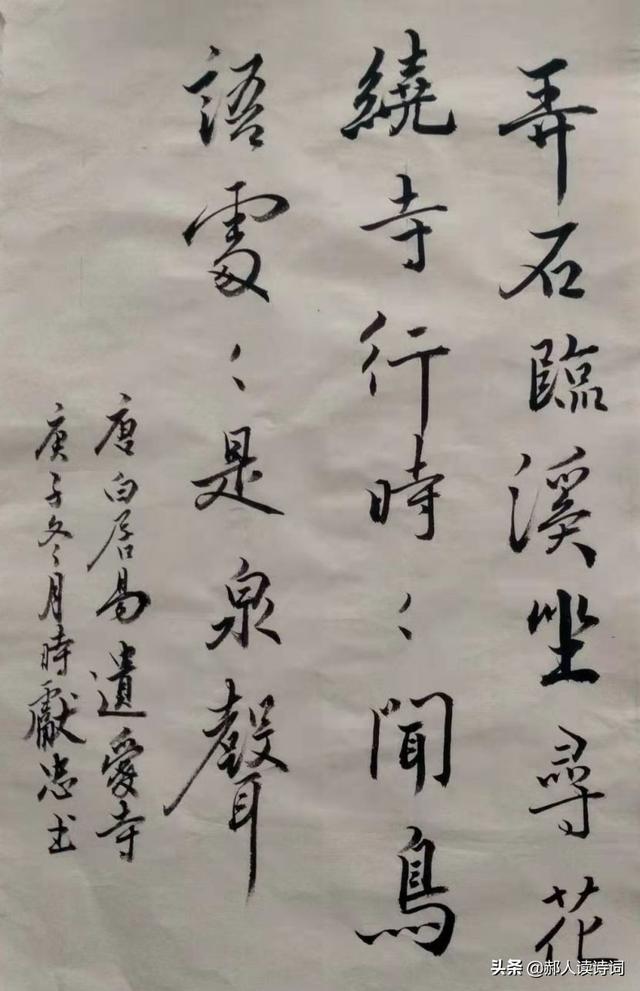 弄石臨溪坐尋花
繞寺行時〻聞鳥
語處〻是泉聲
唐白居易遺愛寺
庚子冬月時獻忠书
头条 @郝人读诗词